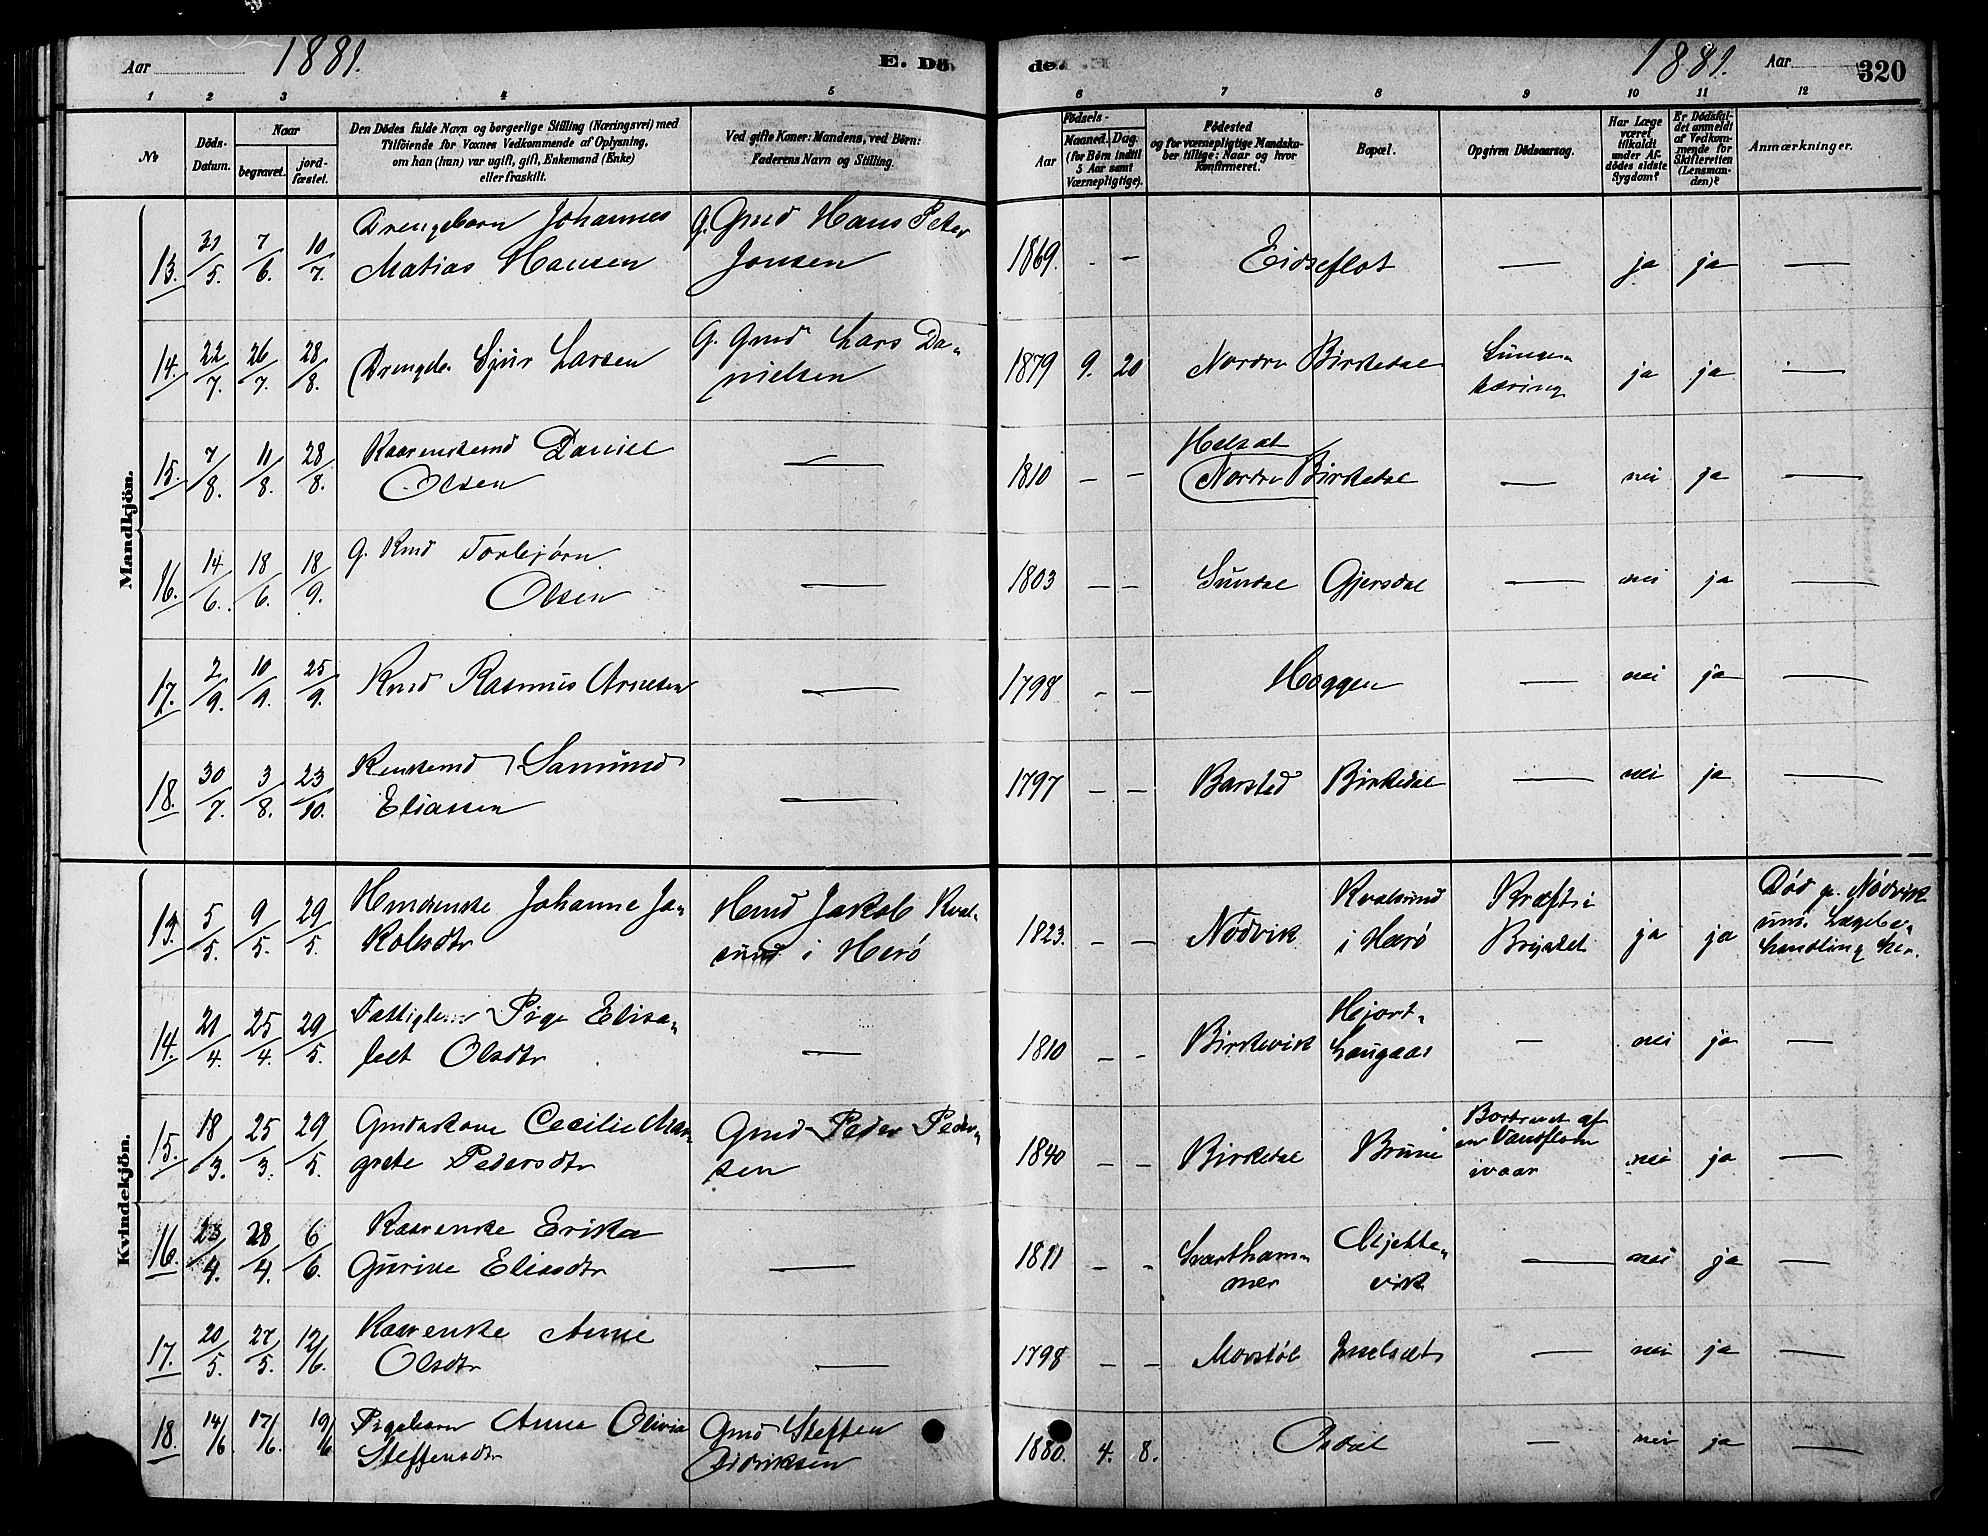 Aar 1881. E. Dö- de. 1881. Aar 320
1 2 3 4 5 6 7 8 9 10 11 12
No
Döds-
Datum.
Naar
begravet.
jord-
fæstet.
Den Dödes fulde Navn og borgerlige Stilling (Næringsvei) med
Tilföiende for Voxnes Vedkommende af Oplysning,
om han (hun) var ugift, gift, Enkemand (Enke)
eller fraskilt.
Ved gifte Koner: Mandens, ved Börn:
Faderens Navn og Stilling.
Födsels-
Aar
Maaned. Dag.
(for Börn indtil
5 Aar samt
Værnepligtige).
Födested
og for værnepligtige Mandska-
ber tillige: Naar og hvor
konfirmeret.
Bopæl.
Opgiven Dödsaarsag.
Har Læge
været
tilkaldt
under Af-
dödes sidste
Sygdom?
Er Dödsfal-
det anmeldt
af Vedkom-
mende for
Skifteretten
(Lensman-
den)?
Anmærkninger.
Mandkjön.
13. 31/5. 7/6. 10/7. Drengebarn Johannes g. Gmd Hans Peter
Matias Hansen Jonsen 1869. - - Eidseflot — ja ja —
14. 22/7. 26/7. 28/8. Drengeb. Sjur Larsen g. Gmd Lars Da-
nielsen 1879 9. 20 Nordre Birkedal ja ja —
15. 7/8. 11/8. 28/8. Kaarenkemd Daniel
Olsen — 1810 - - Nordre Birkedal — nei ja —
16. 14/6. 18/6. 18/9. g. Kmd Torbjørn
Olsen — 1803 - - Sundal Gjersdal — nei ja —
17. 2/9. 10/9. 25/9. Kmd Rasmus Arnesen — 1798 - - Haggen — nei ja —
18. 30/7. 3/8. 23/10. Kenkemd Samund
Eliassen — 1797 - - Barsted Birkedal — nei ja —
Kvindekjön.
13. 5/5. 9/5. 29/5. Johanne Ja- Hmd Jakob Kval-
kobsdtr sund i Herö 1823. - - Nødvik Kvalsund
i Herö Kræft i
Brystet ja ja Död p. Nödvik
und. Lægebe-
handling her.
14. 21/4. 25/4. 29/5. Fattiglem Pige Elisa-
bet Olsdtr — 1810 - - Birkevik Hjort-
haugaas — nei ja —
15. 18/3. 25/3. 29/5. Gmdskone Cecilie Mar- Gmd Peder Peder-
grete Pedersdtr sen 1840 - - Birkedal Brune Bortrevet af
en Vandflom
ivaar nei ja —
16. 23/4. 28/4. 6/6. Kaarenke Erika
Gurine Eliasdtr — 1811 - - Svartham-
mer Skjette-
vik — nei ja —
17. 20/5. 27/5. 12/6. Kaarenke Anne
Olsdtr — 1798 - - Morstöl Indselset — nei ja —
18. 14/6. 17/6. 19/6 Pigebarn Anne Olivia Gmd Steffen
Steffensdtr Didriksen 1880. 4. 8. Osdal — nei ja —